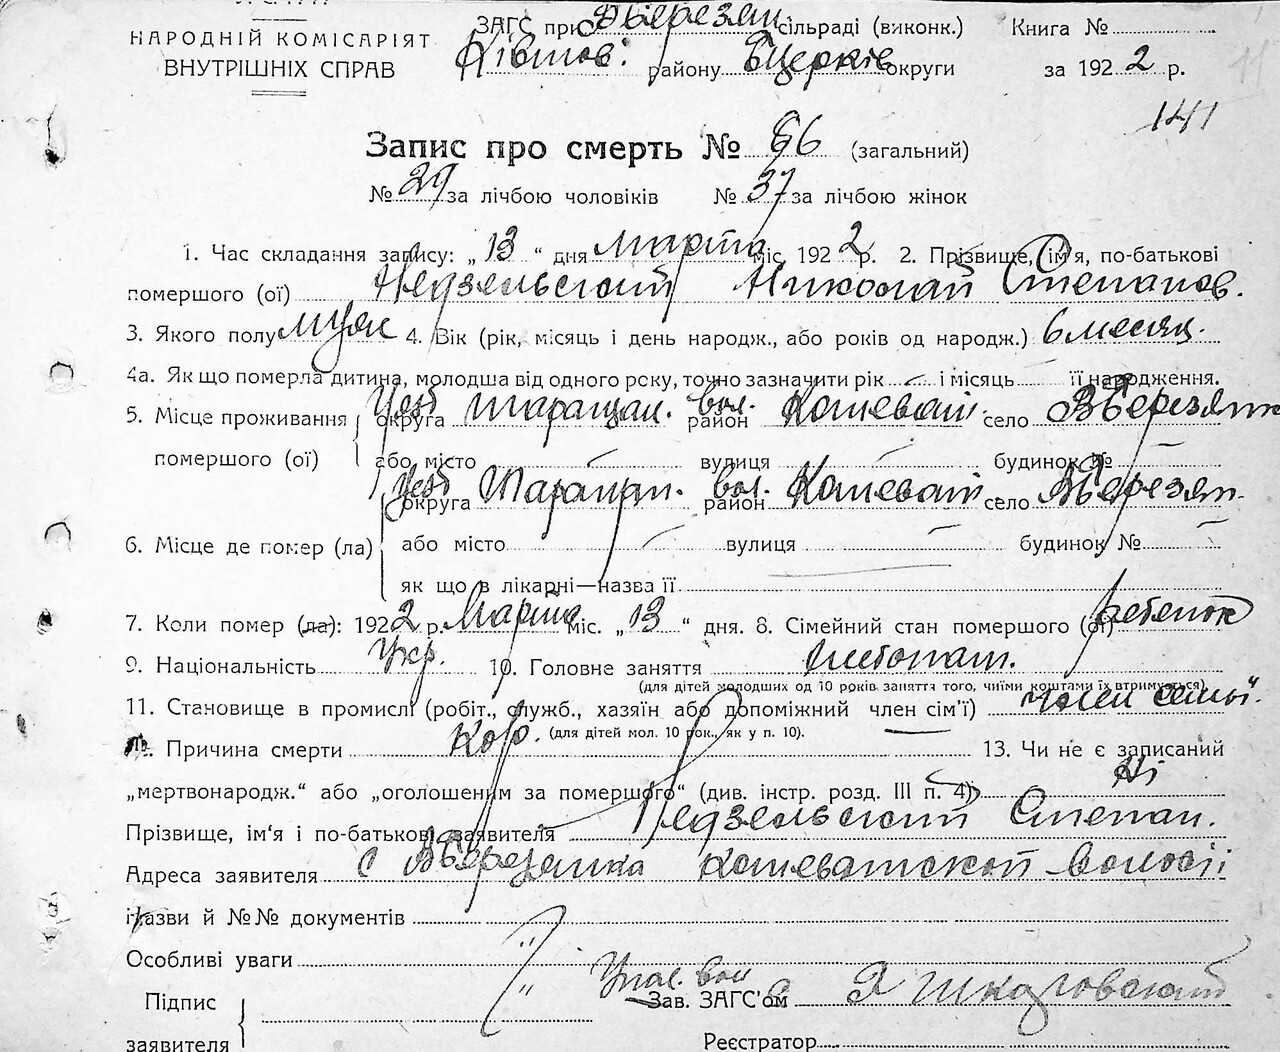 НАРОДНІЙ КОМІСАРІЯТ
ВНУТРІШНІХ СПРАВ
ЗАГС при Березян. сільраді (виконк.) Книга №
району БЦерків округи за 1922 р.
141
Запис про смерть № 66 (загальний)
№ 29 за лічбою чоловіків № 37 за лічбою жінок
1. Час складання запису: „13“ дня Марта міс. 1922 р. 2. Прізвище, ім'я, по-батькові
помершого (ої) Недзельский Николай Степанов.
3. Якого полу муж 4. Вік (рік, місяць і день народж., або років од народж.) 6 месяц.
4а. Як що померла дитина, молодша від одного року, точно зазначити рік і місяць її народження.
5. Місце проживання округа Уезд Таращан. район вол. Кошеват. село Березянк
помершого (ої) або місто вулиця будинок №
округа Уезд Таращан. район вол. Кошеват. село Березян.
6. Місце де помер (ла) або місто вулиця будинок №
як що в лікарні—назва її
7. Коли помер (ла): 1922 р. Марта міс. „13“ дня. 8. Сімейний стан помершого (ої) ребенок
9. Національність Укр. 10. Головне заняття хлебопаш.
(для дітей молодших од 10 років заняття того, чиїми коштами їх втримується)
11. Становище в промислі (робіт., служб., хазяїн або допоміжний член сім'ї) член семьї.
(для дітей мол. 10 рок., як у п. 10).
12. Причина смерти Кор. 13. Чи не є записаний
„мертвонародж.“ або „оголошеним за помершого“ (див. інстр. розд. III п. 4) Ні
Прізвище, ім'я і по-батькові заявителя Недзельский Степан.
Адреса заявителя с Березянка Кошеватской волості
Назви й №№ документів
Особливі уваги
Підпис
заявителя
Зав. ЗАГС'ом
Реєстратор